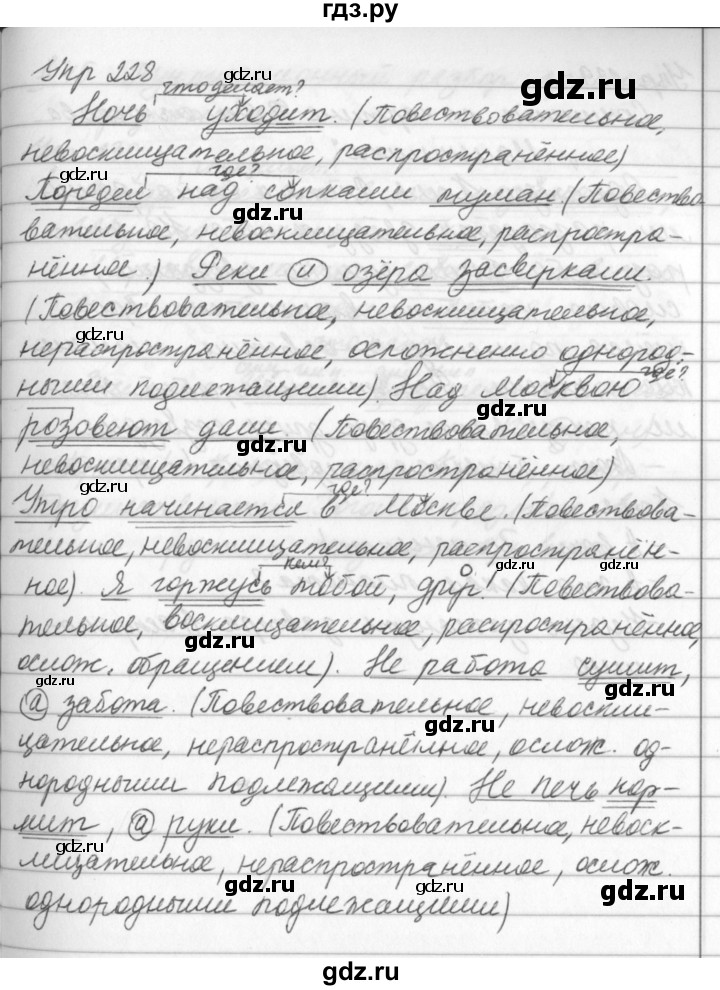 гдз.ру
Упр 228
что делает?
Ночь уходит. (Повествовательное,
невосклицательное, распространённое)
где?
Поредел над сопками туман (Повество-
вательное, невосклицательное, распростра-
нённое) Реки и озёра засверкали.
(Повествовательное, невосклицательное,
нераспространённое, осложнено однород-
ными подлежащими). Над Москвою
где?
розовеют дали (Повествовательное,
невосклицательное, распространённое)
где?
Утро начинается в Москве. (Повествова-
тельное, невосклицательное, распространён-
ное). Я горжусь тобой, друг! (Повествова-
кем?
тельное, восклицательное, распространённое,
ослож. обращением). Не работа сушит,
а забота. (Повествовательное, невоскли-
цательное, нераспространённое, ослож. од-
нородными подлежащими). Не печь кор-
мит, а руки. (Повествовательное, невоск-
лицательное, нераспространённое, ослож.
однородными подлежащими)
gdz.ru
gdz.ru
gdz.ru
gdz.ru
gdz.ru
gdz.ru
gdz.ru
gdz.ru
gdz.ru
gdz.ru
gdz.ru
gdz.ru
gdz.ru
gdz.ru
gdz.ru
gdz.ru
gdz.ru
gdz.ru
gdz.ru
gdz.ru
gdz.ru
gdz.ru
gdz.ru